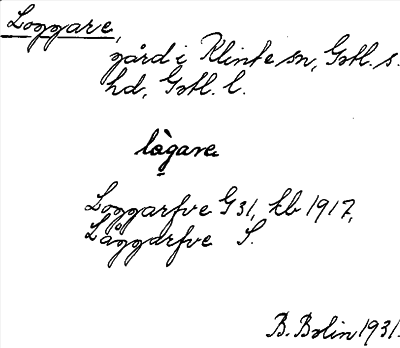 Loggare,
gård i Klinte sn, Gotl. s.
hd, Gotl. l.
lågare
Loggarfve G 31, kb 1917,
Låggarfve S.
B. Bolin 1931.